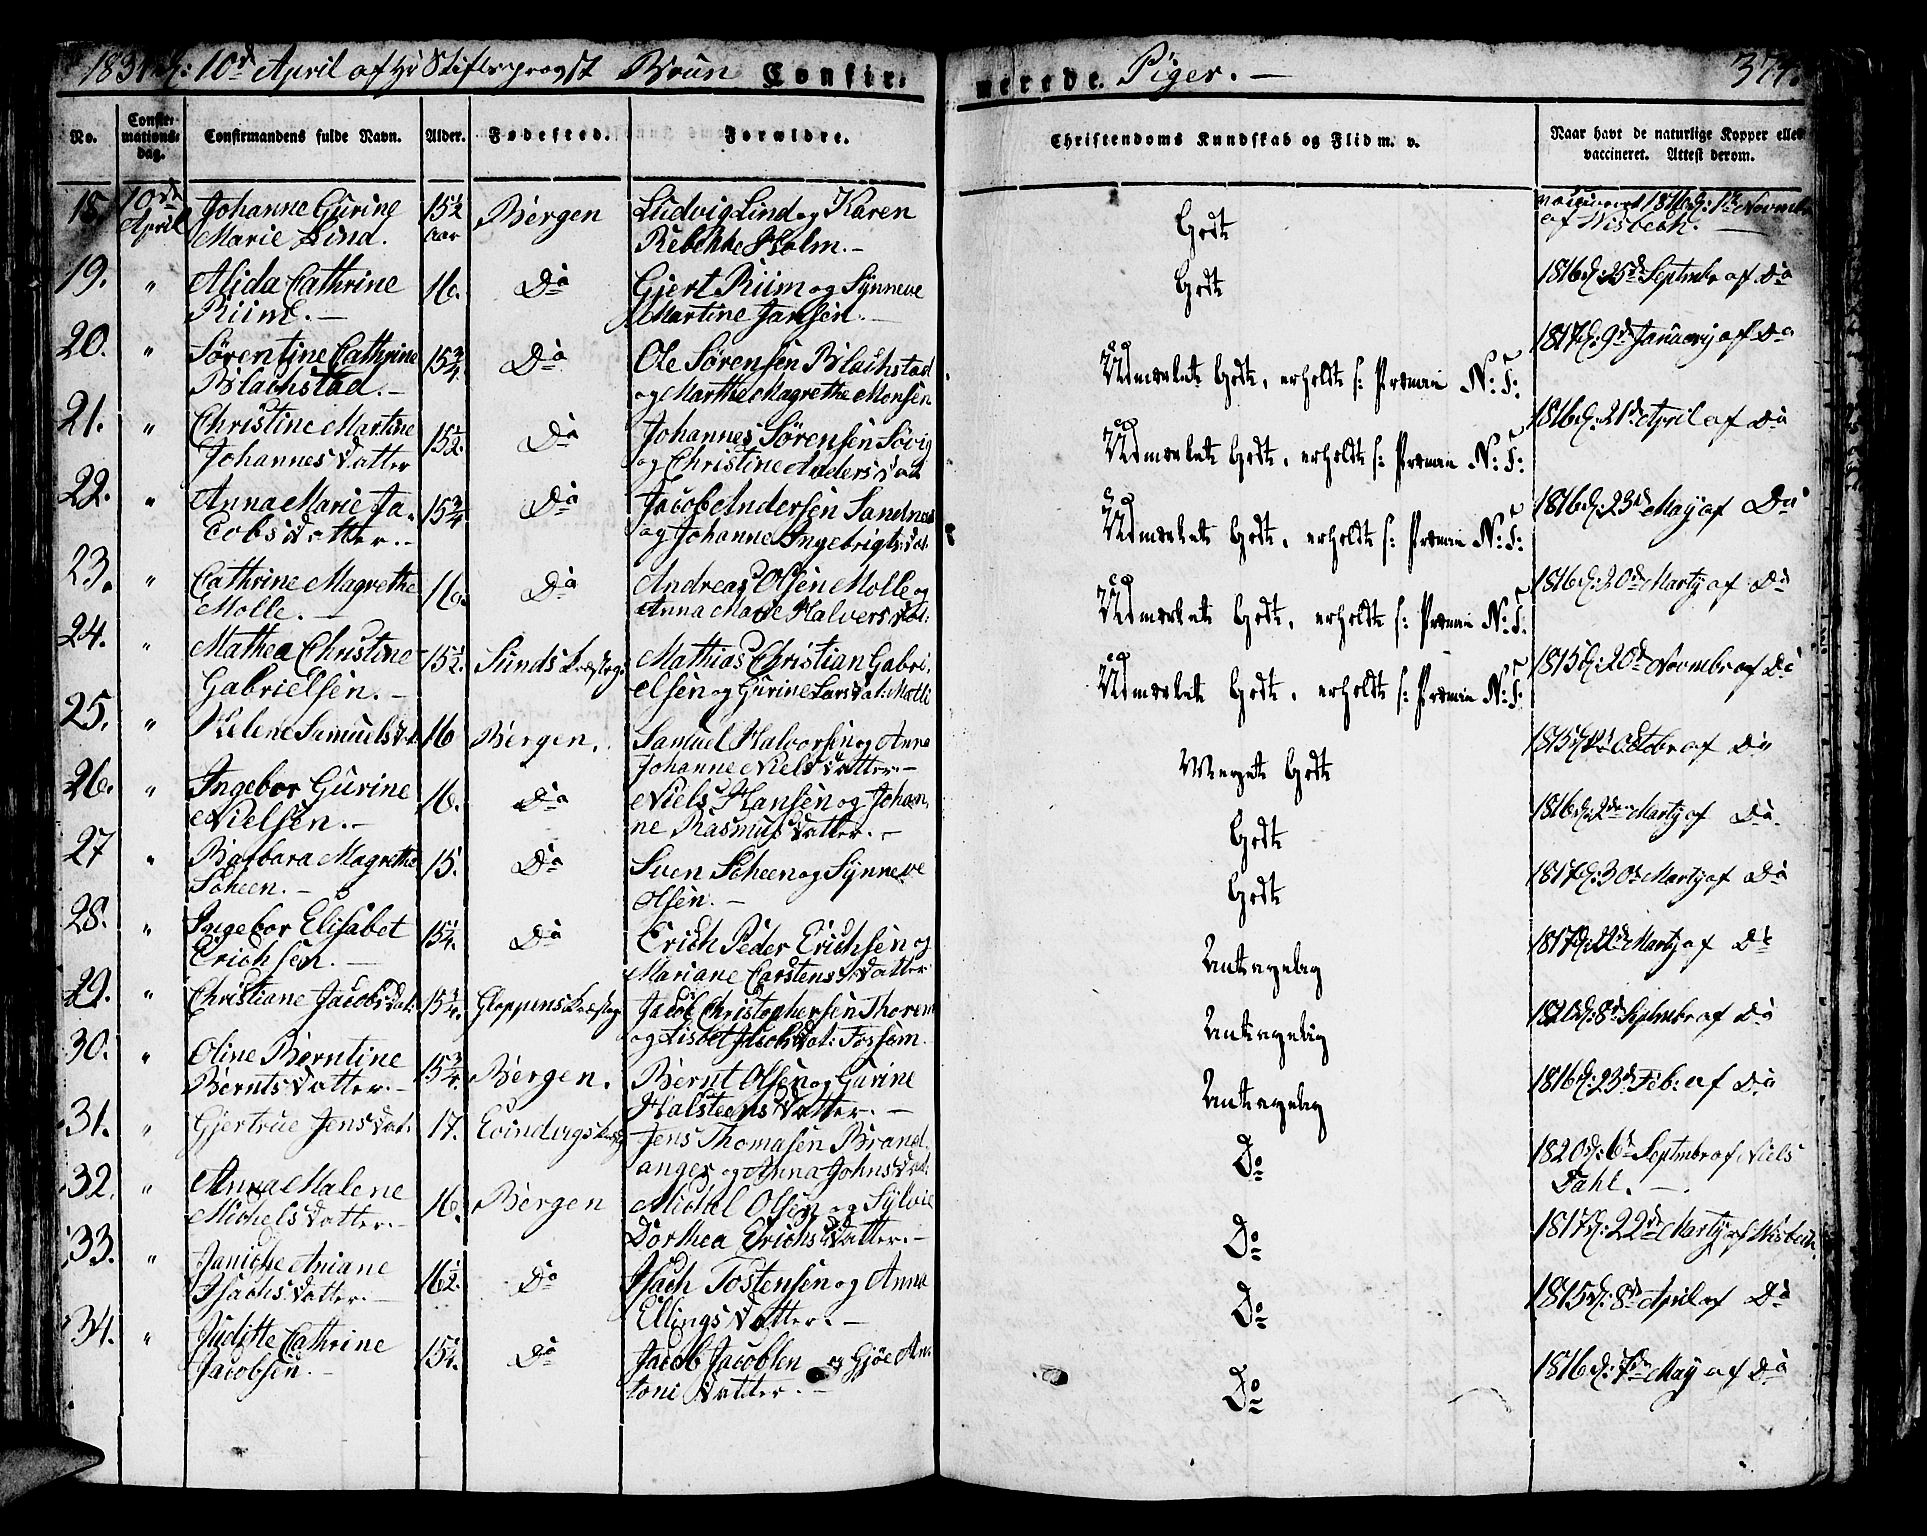 1831 d: 10de April af Hr Stiftsprovst Brun Confir-
merede Piger. —
374.
No. Confirmationsdag. Confirmandens fulde Navn. Alder. Fødested. Forældre. Christendoms Kundskab og Flid m. v. Naar havt de naturlige Kopper eller vaccineret. Attest derom.
18. 10de April Johanne Gurine Marie Lind. 15½ aar Bergen Ludvig Lind og Karen Rebekke Holm. — Godt vaccineret 1816 d: 1ste Novembr af Wisbech. —
19. " Alida Cathrine Riim. — 16. Do Gjert Riim og Synneve Martine Jansen. — Godt 1816 d: 25de Septembr af Do
20. " Sørentine Cathrine Blachstad. — 15¾. Do Ole Sørensen Blachstad og Marthe Magrethe Monsen Udmærket Godt, erholdt s: Præmie N: 5: 1817 d: 9de Januarij af Do
21. " Christine Martine Johannesdatter 15½. Do Johannes Sørensen Søvig og Christine Andersdat Udmærket Godt, erholdt s: Præmie N: 5: 1816 d: 21de April af Do
22. " Anna Marie Jacobsdatter. — 15¾. Do Jacob Andersen Sandnes og Johanne Ingebrigtsdat: Udmærket Godt, erholdt s: Præmie N: 5: 1816 d: 23de May af Do
23. " Cathrine Magrethe Molle. — 16. Do Andreas Olsen Molle og Anna Marie Halversdat: Udmærket Godt, erholdt s: Præmie N: 5: 1816 d: 20de Martij af Do
24. " Mathea Christine Gabrielsen. — 15½. Sunds Præsteg: Mathias Christian Gabrielsen og Gurine Larsdat: Molle Udmærket Godt, erholdt s: Præmie N: 5: 1815 d: 20de Novembr af Do
25. " Helene Samuelsdat: 16 Bergen. Samuel Halvorsen og Anna Johanne Nielsdatter. — Meget Godt 1815 d: Octobr af Do
26. " Ingebor Gurine Nielsen. — 16. Do Niels Hansen og Johanne Rasmusdatter. — Godt 1816 d: 2den Martij af Do.
27 " Barbara Magrethe Scheen. — 15. Do Sven Scheen og Synneve Olsen. — Godt 1817 d: 30de Martij af Do
28. " Ingebor Elisabet Erichsen. — 15¼. Do Erich Peder Erichsen og Mariane Carstensdatter Antagelig 1817 d: Martij af Do
29. " Christiane Jacobsdat: 15¾. Gloppens Præsteg Jacob Christophersen Thorem og Lisbet Jacobsdat: Fossem. Antagelig d: 8de Septembr af Do
30. " Oline Berntine Berntsdatter. — 15¾. Bergen. Bernt Olsen og Gurine Halsteensdatter. — Antagelig 1816 d: 23de Feb: af Do
31. " Gjertrue Jensdat: 17. Evindvigs Jens Thomasen Brandanger og Anna Johnsdat: Do 1820 d: 6te Septembr af Niels Dahl. —
32. " Anna Malene Michelsdatter. — 16. Bergen Michel Olsen og Sylvie Dorthea Erichsdatter. — Do 1817 d: 22de Martij af Wisbech.
33. " Janiche Aniane Isachsdatter. — 16½. Do Isach Tostensen og Anna Ellingsdatter. — Do 1815 d: 8de April af Do
34. " Juditte Cathrine Jacobsen. — 15¼. Do Jacob Jacobsen og Gjøe Antonidatter. — Do 1816 d: 7de May af Do